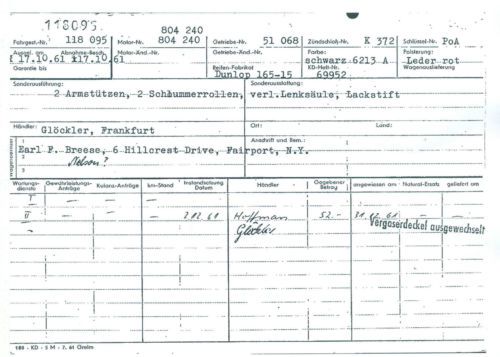 118095
804 240
Fahrgest.-Nr. 118 095 Motor-Nr. 804 240 Getriebe-Nr. 51 068 Zündschloß-Nr. K 372 Schlüssel-Nr. PoA
Ausgel. am Abnahme-Besch. Motor-Änd.-Nr. Getriebe-Änd.-Nr. Farbe: Polsterung:
17.10.61 x17.10.61 schwarz 6213 A Leder rot
Garantie bis Reifen-Fabrikat KD-Heft-Nr. Wagenauslieferung
Dunlop 165-15 69952
Sonderausführung: Sonderausstattung:
2 Armstützen, 2 Schlummerrollen, verl.Lenksäule, Lackstift
Händler: Ort: Land:
Glöckler, Frankfurt
Anschrift und Bem.:
1 Earl F. Breese, 6 Hillcrest Drive, Fairport, N.Y.
2 Nelson?
3
Wartungs-dienste Gewährleistungs-Anträge Kulanz-Anträge km-Stand Instandsetzung Datum Händler Gegebener Betrag angewiesen am Natural-Ersatz geliefert am
I — — —
II — — — 2.12.61 Hoffmann 52.- 31.12.61 — —
— Glöckler Vergaserdeckel ausgewechselt
188 - KD - 5 M - 7. 61 Greim